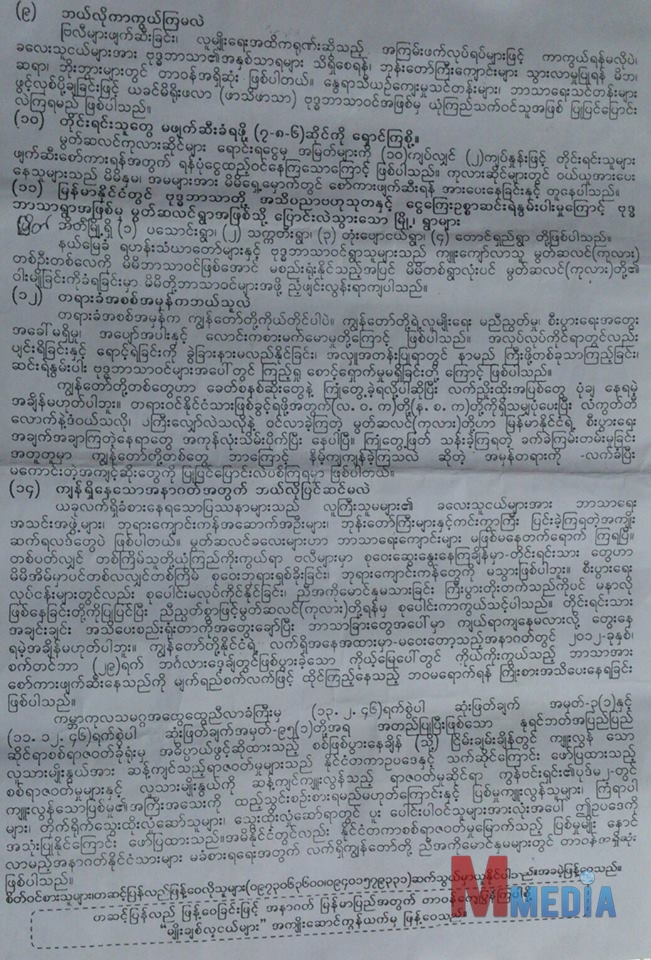 (၉) ဘယ်လိုကာကွယ်ကြမလဲ
ဗလီများဖျက်ဆီးခြင်း၊ လူမျိုးရေးအဓိကရုဏ်းဆိုသည့် အကြမ်းဖက်လုပ်ရပ်များဖြင့် ကာကွယ်ရန်မလိုပဲ၊
ခလေးသူငယ်များအား ဗုဒ္ဓဘာသာ၏အနှစ်သာရများ သိရှိစေရန်၊ ဘုန်းတော်ကြီးကျောင်းများ သွားလာမှုပြုရန် မိဘ၊
ဆရာ၊ ဘိုးဘွားများတွင် တာဝန်အရှိဆုံး ဖြစ်ပါတယ်။ နွေရာသီယဉ်ကျေးမှုသင်တန်းများ၊ ဘာသာရေးသင်တန်းများ
ဖွင့်လှစ်ပို့ချခြင်းဖြင့် ယခင်မိရိုးဖလာ (ဖာသိဖာသာ) ဗုဒ္ဓဘာသာဝင်အဖြစ်မှ ယုံကြည်သက်ဝင်သူအဖြစ် ပြုပြင်ပြောင်း
လဲကြရမည် ဖြစ်ပါသည်။
(၁၀) တိုင်းရင်းသူတွေ မဖျက်ဆီးခံရဖို့ (၇-၈-၆)ဆိုင်ကို ရှောင်ကြစို့။
မွတ်ဆလင်ကုလားဆိုင်များ ရောင်းရငွေမှ အမြတ်များကို (၁၀)ကျပ်လျှင် (၂)ကျပ်နှုန်းဖြင့် တိုင်းရင်းသူများ
ဖျက်ဆီးစော်ကားရန်အတွက် ရန်ပုံငွေထည့်ဝင်နေကြသောကြောင့် ဖြစ်ပါသည်။ ကုလားဆိုင်များတွင် ဝယ်ယူအားပေး
နေသူများသည် မိမိနှမ၊ အမများအား မိမိရှေ့မှောက်တွင် စော်ကားဖျက်ဆီးရန် အားပေးနေခြင်းနှင့် တူနေပါသည်။
(၁၁) မြန်မာနိုင်ငံတွင် ဗုဒ္ဓဘာသာတို့ အသိပညာဗဟုသုတနှင့် ငွေကြေးဥစ္စာဆင်းရဲနွမ်းပါးမှုကြောင့် ဗုဒ္ဓ
ဘာသာရွာအဖြစ်မှ မွတ်ဆလင်ရွာအဖြစ်သို့ ပြောင်းလဲသွားသော မြို့၊ ရွာများ
မြိတ်မြို့ရှိ (၁) ပသောင်းရွာ၊ (၂) သက္ကတီးရွာ၊ (၃) တုံးပျောငယ်ရွာ၊ (၄) တောင်ရှည်ရွာ တို့ဖြစ်ပါသည်။
နယ်မြေခံ ရဟန်းသံဃာတော်များနှင့် ဗုဒ္ဓဘာသာဝင်ရွာသူများသည် ကျူးကျော်လာသူ မွတ်ဆလင်(ကုလား)
တစ်ဦးတစ်လေကို မိမိဘာသာဝင်ဖြစ်အောင် မစည်းရုံးနိုင်သည့်အပြင် မိမိတစ်ရွာလုံးပင် မွတ်ဆလင်(ကုလား)တို့၏
ဝါးမျိုခြင်းကိုခံရခြင်းမှာ မိမိတို့ဘာသာဝင်များအဖို့ ညံ့ဖျင်းလွန်းရာကျပါသည်။
(၁၂) တရားခံအစစ်အမှန်ကဘယ်သူလဲ
တရားခံအစစ်အမှန်က ကျွန်တော်တို့ကိုယ်တိုင်ပါပဲ။ ကျွန်တော်တို့ရဲ့လူမျိုးရေး မညီညွတ်မှု၊ စီးပွားရေးအတွေး
အခေါ်မရှိမှု၊ အပျော်အပါးနှင့် လောင်းကစားမက်မောမှုတို့ကြောင့် ဖြစ်ပါသည်။ အလုပ်လုပ်ကိုင်ရာတွင်လည်း
ပျင်းရိခြင်းနှင့် ရောင့်ရဲခြင်းကို ခွဲခြားနားမလည်နိုင်ခြင်း၊ အလှူအတန်းပြုရာတွင် နာမည် ကြီးဖို့တစ်ခုသာကြည့်ခြင်း၊
ဆင်းရဲနွမ်းပါး ဗုဒ္ဓဘာသာဝင်များအပေါ်တွင် ကြည့်ရှု စောင့်ရှောက်မှုမရှိခြင်းတို့ ကြောင့် ဖြစ်ပါသည်။
ကျွန်တော်တို့တစ်တွေဟာ ခေတ်စနစ်ဆိုးတွေနဲ့ ကြုံတွေ့ခဲ့ရလို့ပါဆိုပြီး လက်ညှိုးထိုးအပြစ်တွေ ပုံချ နေရမဲ့
အချိန်မဟုတ်ပါဘူး။ တရားဝင်နိုင်ငံသားဖြစ်ခွင့်ရဖို့အတွက်(လ. ဝ. က)တို့(န. စ. က)တို့ကိုရိုသမျှပုံပေးပြီး လံကွတ်တီ
လောက်နဲ့ဒီဝယ်သလို၊ ပကြီးလျှော်လဲသလိုနဲ့ ဝင်လာခဲ့ကြတဲ့ မွတ်ဆလင်(ကုလား)တို့ဟာ မြန်မာနိုင်ငံရဲ့ စီးပွားရေး
အချက်အချာကြတဲ့နေရာတွေ အကုန်လုံးသိမ်းပိုက်ပြီး နေပါပြီ။ ကြုံတွေ့ဖြတ် သန်းခဲ့ကြရတဲ့ ခက်ခဲကြမ်းတမ်းမှုခြင်း
အတူတူမှာ ကျွန်တော်တို့တစ်တွေ ဘာကြောင့် နိမ့်ကျကျန်ခဲ့ကြသလဲ ဆိုတဲ့ အမှန်တရားကို -လက်ခံပြီး
မကောင်းတဲ့အကျင့်ဆိုးတွေကို ပြုပြင်ပြောင်းလဲပစ်ကြရမှာ ဖြစ်ပါတယ်။
(၁၄) ကျန်ရှိနေသောအနာဂတ်အတွက် ဘယ်လိုပြင်ဆင်မလဲ
ယခုလက်ရှိခံစားနေရသောပြဿနာများသည် လူကြီးသူမများ၏ ခလေးသူငယ်များအား ဘာသာရေး
အသင်းအဖွဲ့များ၊ ဘုရားကျောင်းကန်အဆောက်အဦးများ၊ ဘုန်းတော်ကြီးများနှင့်ကင်းကွာကြီး ပြင်းခဲ့ကြရတဲ့အကျိုး
ဆက်ရလဒ်တွေပဲ ဖြစ်ပါတယ်။ မွတ်ဆလင်ခလေးများဟာ ဘာသာရေးကျောင်းများ မဖြစ်မနေတက်ရောက် ကြရပြီ။
တစ်ပတ်လျှင် တစ်ကြိမ်သူတို့ယုံကြည်ကိုးကွယ်ရာ ဗလီများမှာ စုဝေးဆွေးနွေးနေကြချိန်မှာ-တိုင်းရင်းသား တွေဟာ
မိမိအိမ်မှာပင်တစ်လလျှင်တစ်ကြိမ် စုဝေးဘုရားရှစ်ခိုးခြင်း၊ ဘုရားကျောင်းကန်တွေကို မသွားဖြစ်ပါဘူး။ စီးပွားရေး
လုပ်ငန်းများတွင်လည်း စုပေါင်းမလုပ်ကိုင်နိုင်ခြင်း၊ ညီအကိုမောင်နှမသားခြင်း ကြီးပွားတိုးတက်သည်ကိုပင် မနာလို
ဖြစ်နေခြင်းတို့ကိုပြုပြင်ပြီး ညီညွတ်စွာဖြင့်မွတ်ဆလင်(ကုလား)တို့ရန်မှ စုပေါင်းကာကွယ်သင့်ပါသည်။ တိုင်းရင်းသား
အချင်းချင်း အသိပေးစည်းရုံးတာကိုအတွေးခေါ်ပြီး ဘာသာခြားတွေအပေါ်မှာ ကျယ်ရာကျနေမလားလို့ တွေးနေ
ရမဲ့အချိန်မဟုတ်ပါဘူး။ ကျွန်တော်တို့နိုင်ငံရဲ့ လက်ရှိအနေအထားမှာ-မဝေးတော့သည့်အနာဂတ်တွင် ၂၀၁၂-ခုနှစ်၊
စက်တင်ဘာ (၂၉)ရက် ဘင်္ဂလားဒေ့ရှ်တွင်ဖြစ်ပွားခဲ့သော ကိုယ့်မြေပေါ်တွင် ကိုယ်ကိုးကွယ်သည့် ဘာသာအား
စော်ကားဖျက်ဆီးနေသည်ကို မျက်ရည်စက်လက်ဖြင့် ထိုင်ကြည့်နေသည့် ဘဝမရောက်ရန် ကြိုးစားအသိပေးနေရခြင်း
ဖြစ်ပါသည်။
ကမ္ဘာ့ကုလသမဂ္ဂအထွေထွေညီလာခံကြီးမှ (၁၃. ၂. ၄၆)ရက်စွဲပါ ဆုံးဖြတ်ချက် အမှတ်-၃(၁)နှင့်
(၁၁. ၁၂. ၄၆)ရက်စွဲပါ ဆုံးဖြတ်ချက်အမှတ်-၉၅(၁)တို့အရ အတည်ပြုပြီးဖြစ်သော နူရင်ဘတ်အပြည်ပြည်
ဆိုင်ရာစစ်ရာဇဝတ်ခုံရုံးမှ အဓိပ္ပာယ်ဖွင့်ဆိုထားသည့် စစ်ဖြစ်ပွားနေချိန် (သို့) ငြိမ်းချမ်းချိန်တွင် ကျူးလွန် သော
လူသားမျိုးနွယ်အား ဆန့်ကျင်သည့်ရာဇဝတ်မှုများသည် နိုင်ငံတကာဥပဒေနှင့် သက်ဆိုင်ကြောင်း ဖော်ပြထားသည့်
စစ်ရာဇဝတ်မှုများနှင့် လူသားမျိုးနွယ်ကို ဆန့်ကျင်ကျူးလွန်သည့် ရာဇဝတ်မှုဆိုင်ရာ ကွန်ဗင်းရှင်း၏ပုဒ်မ၂-တွင်
ကျူးလွန်သောပြစ်မှု၏အကြီးအသေးကို ထည့်သွင်းစဉ်းစားရမည်မဟုတ်ကြောင်းနှင့် ပြစ်မှုကျူးလွန်သူများ၊ ကြံရာပါ
များ၊ တိုက်ရိုက်သွေးထိုးလှုံ့ဆော်သူများ၊ သွေးထိုးလှုံ့ဆော်ရာတွင် ပူး ပေါင်းပါဝင်သူများအားလုံးအပေါ် ဤဥပဒေကို
အသုံးပြုနိုင်ကြောင်း ဖော်ပြထားသည်။အမိနိုင်ငံတွင်လည်း နိုင်ငံတကာစစ်ရာဇဝတ်မှုမြောက်သည့် ပြစ်မှုမျိုး နောင်
လာမည့်အနာဂတ်နိုင်ငံသားများ မခံစားရရေးအတွက် လက်ရှိကျွန်တော်တို့ ညီအကိုမောင်နှမများတွင် တာဝန်အရှိဆုံး
ဖြစ်ပါသည်။
စိတ်ဝင်စားသူများ၊တဆင့်ပြန်လည်ဖြန့်ဝေလိုသူများ(၀၉၇၃၀၆၃၆၀၀၊၀၉၄၀၁၅၇၉၃၃၁)ဆက်သွယ်မှာယူနိုင်ပါသည်။အခမဲ့ဖြန့်ဝေသည်။
တဆင့်ပြန်လည် ဖြန့်ဝေခြင်းဖြင့် အနာဂတ် မြန်မာပြည်အတွက် တာဝန်ကျေပွန်ကြပါစို့
"မျိုးချစ်လူငယ်များ" အကျိုးဆောင်ကွန်ယက်မှ ဖြန့်ဝေသည်
M MEDIA